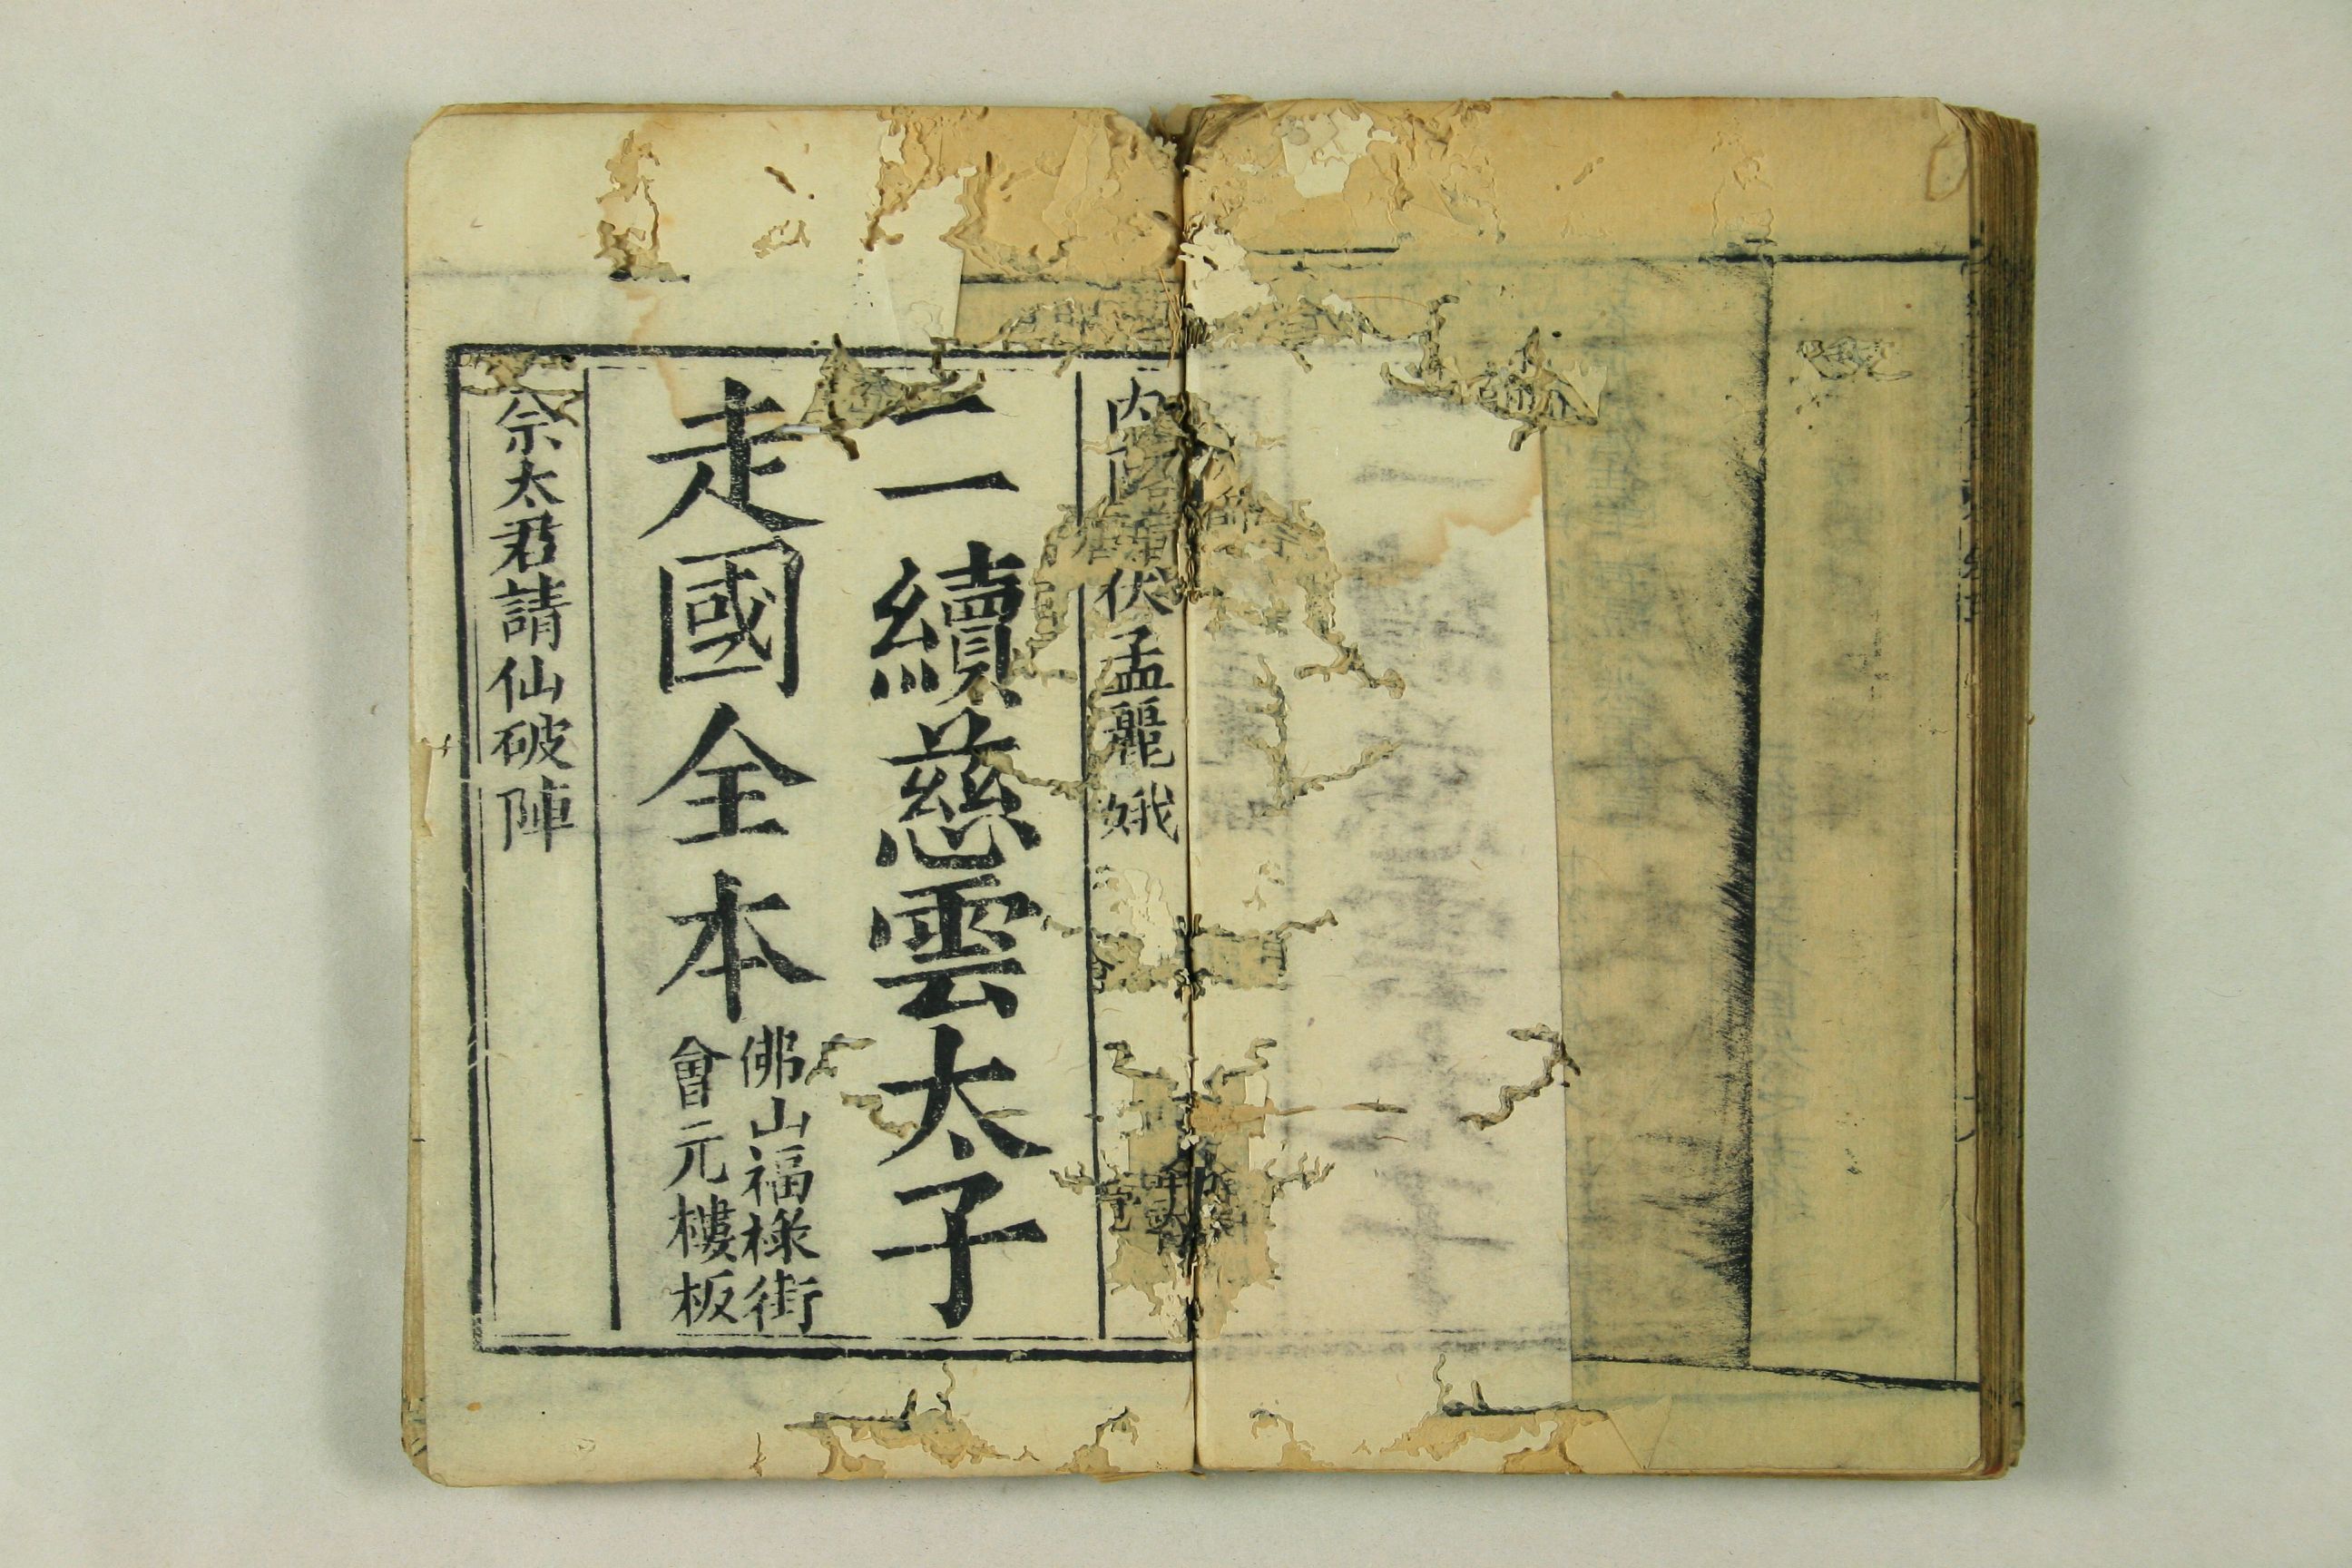 内 伏孟麗娥
二續慈雲太子
走國全本
佛山福祿街
會元樓板
佘太君請仙破陣